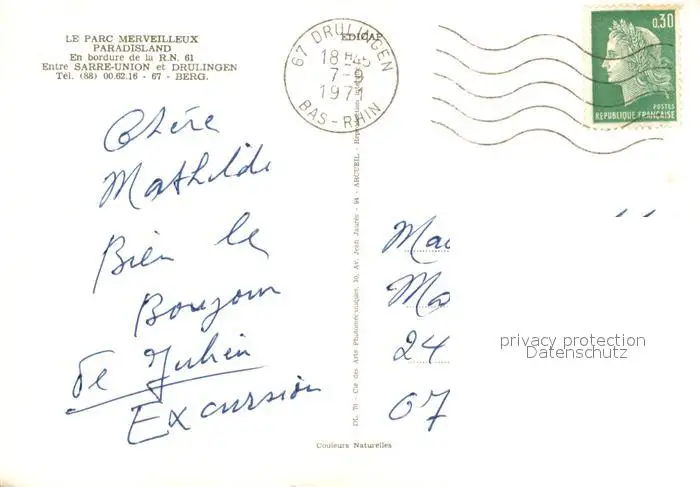 LE PARC MERVEILLEUX
PARADISLAND
En bordure de la R.N. 61
Entre SARRE-UNION et DRULINGEN
Tél. (88) 00.62.16 - 67 - BERG.
EDICAP
67 DRULINGEN
18 H 45
7-9
BAS-RHIN
0,30
POSTES
REPUBLIQUE FRANÇAISE
Chère
Mathilde
Bien le
Boujour
de Julien
Excursion
24
07
privacy protection
Datenschutz
PL. 70 - Cie des Arts Photomécaniques, 10, Av. Jean Jaurès - 94 - ARCUEIL. - Reproduction
Couleurs Naturelles